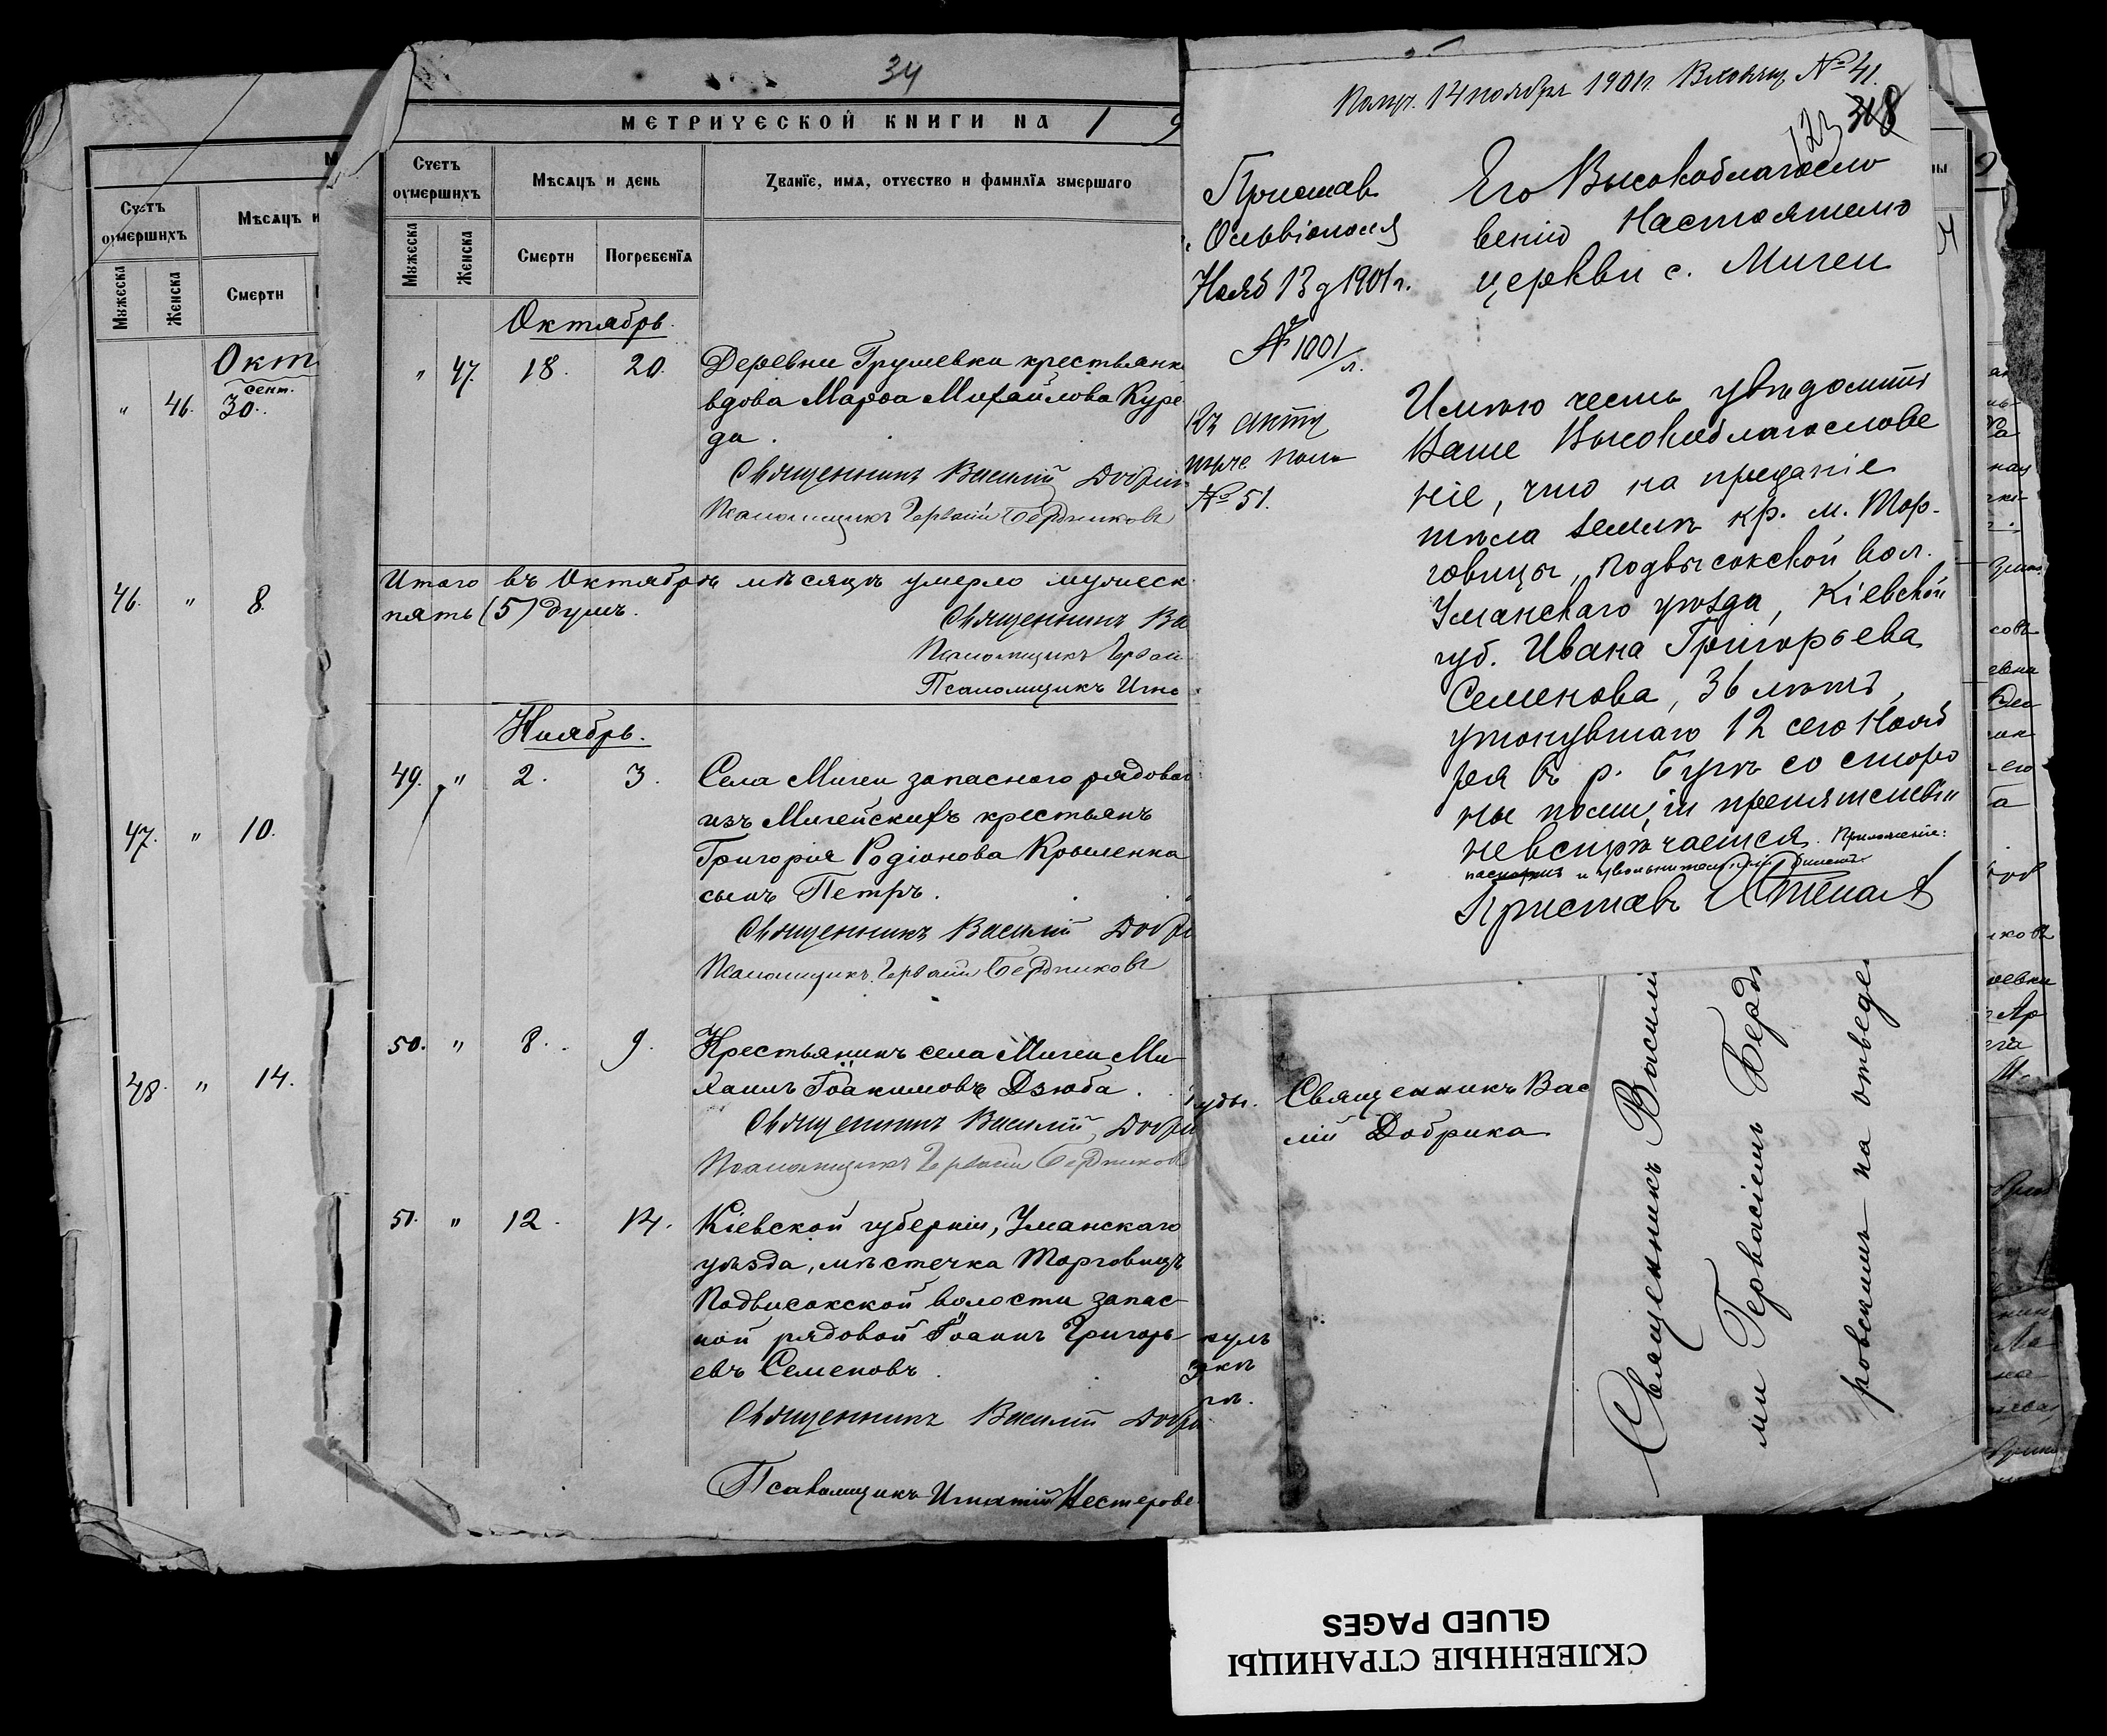 34
МЕТРИЧЕСКОЙ КНИГИ НА 19
Счетъ умершихъ
Мѣсяцъ и
Мужеска
Женска
Смерти
Окт
сент.
" 46. 30.
46. " 8.
47. " 10.
48. " 14.
Счетъ умершихъ
Мѣсяцъ и день
Званіе, имя, отчество и фамилія умершаго
Мужеска
Женска
Смерти
Погребенія
Октябрь.
" 47. 18. 20. Деревни Грушевки крестьянк
вдова Марѳа Михайлова Куре
да.
Священникъ Василій Добри
Псаломщикъ Гервасій Бердниковъ
Итого въ Октябрѣ мѣсяцѣ умерло мужеск
пять (5) душъ.
Священникъ Ва
Псаломщикъ Гервасі
Псаломщикъ Игна
Ноябрь.
49. " 2. 3. Села Мигеи запасного рядовог
изъ Мигейскихъ крестьянъ
Григорія Родіонова Крыленка
сынъ Петръ.
Священникъ Василій Добри
Псаломщикъ Гервасій Бердниковъ
50. " 8. 9. Крестьянинъ села Мигеи Ми
хаилъ Іоакимовъ Дзюба.
Священникъ Василій Добри
Псаломщикъ Гервасій Бердников
51. " 12. 14. Кіевской губерніи, Уманскаго
уѣзда, мѣстечка Торговицъ
Подвысокской волости запас
ной рядовой Іоаннъ Григорь
евъ Семеновъ.
Священникъ Василій Добри
Псаломщикъ Игнатій Нестерове
Получ. 14 ноября 1901 г. Входящ. № 41.
123 318
Приставъ
Ольвіополя
Нояб 13 д 1901 г.
№ 1001
л.
Къ акту
№ 51.
Его Высокоблагосло
венію Настоятелю
церкви с. Мигеи
Имѣю честь увѣдомить
Ваше Высокоблагослове
ніе, что на преданіе
тѣла землѣ кр. м. Тор-
говицы, Подвысокской вол.
Уманскаго уѣзда, Кіевской
губ. Ивана Григорьева
Семенова, 36 лѣтъ,
утонувшаго 12 сего Нояб
ря въ р. Бугѣ со сторо
ны полиціи препятствій
невстрѣчается. Приложеніе:
паспортъ и увольнительный билетъ
Приставъ
уды.
Священникъ Вас
лій Добрика
куль
Священникъ Василі
ми Гервасіемъ Берд
ровскимъ на отведе
СКЛЕЕННЫЕ СТРАНИЦЫ
GLUED PAGES